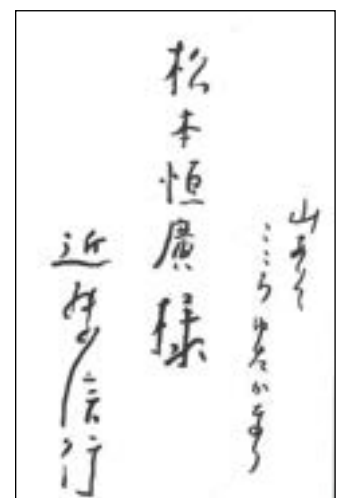 山
こころゆたかなり
松本恒廣様
近藤信行